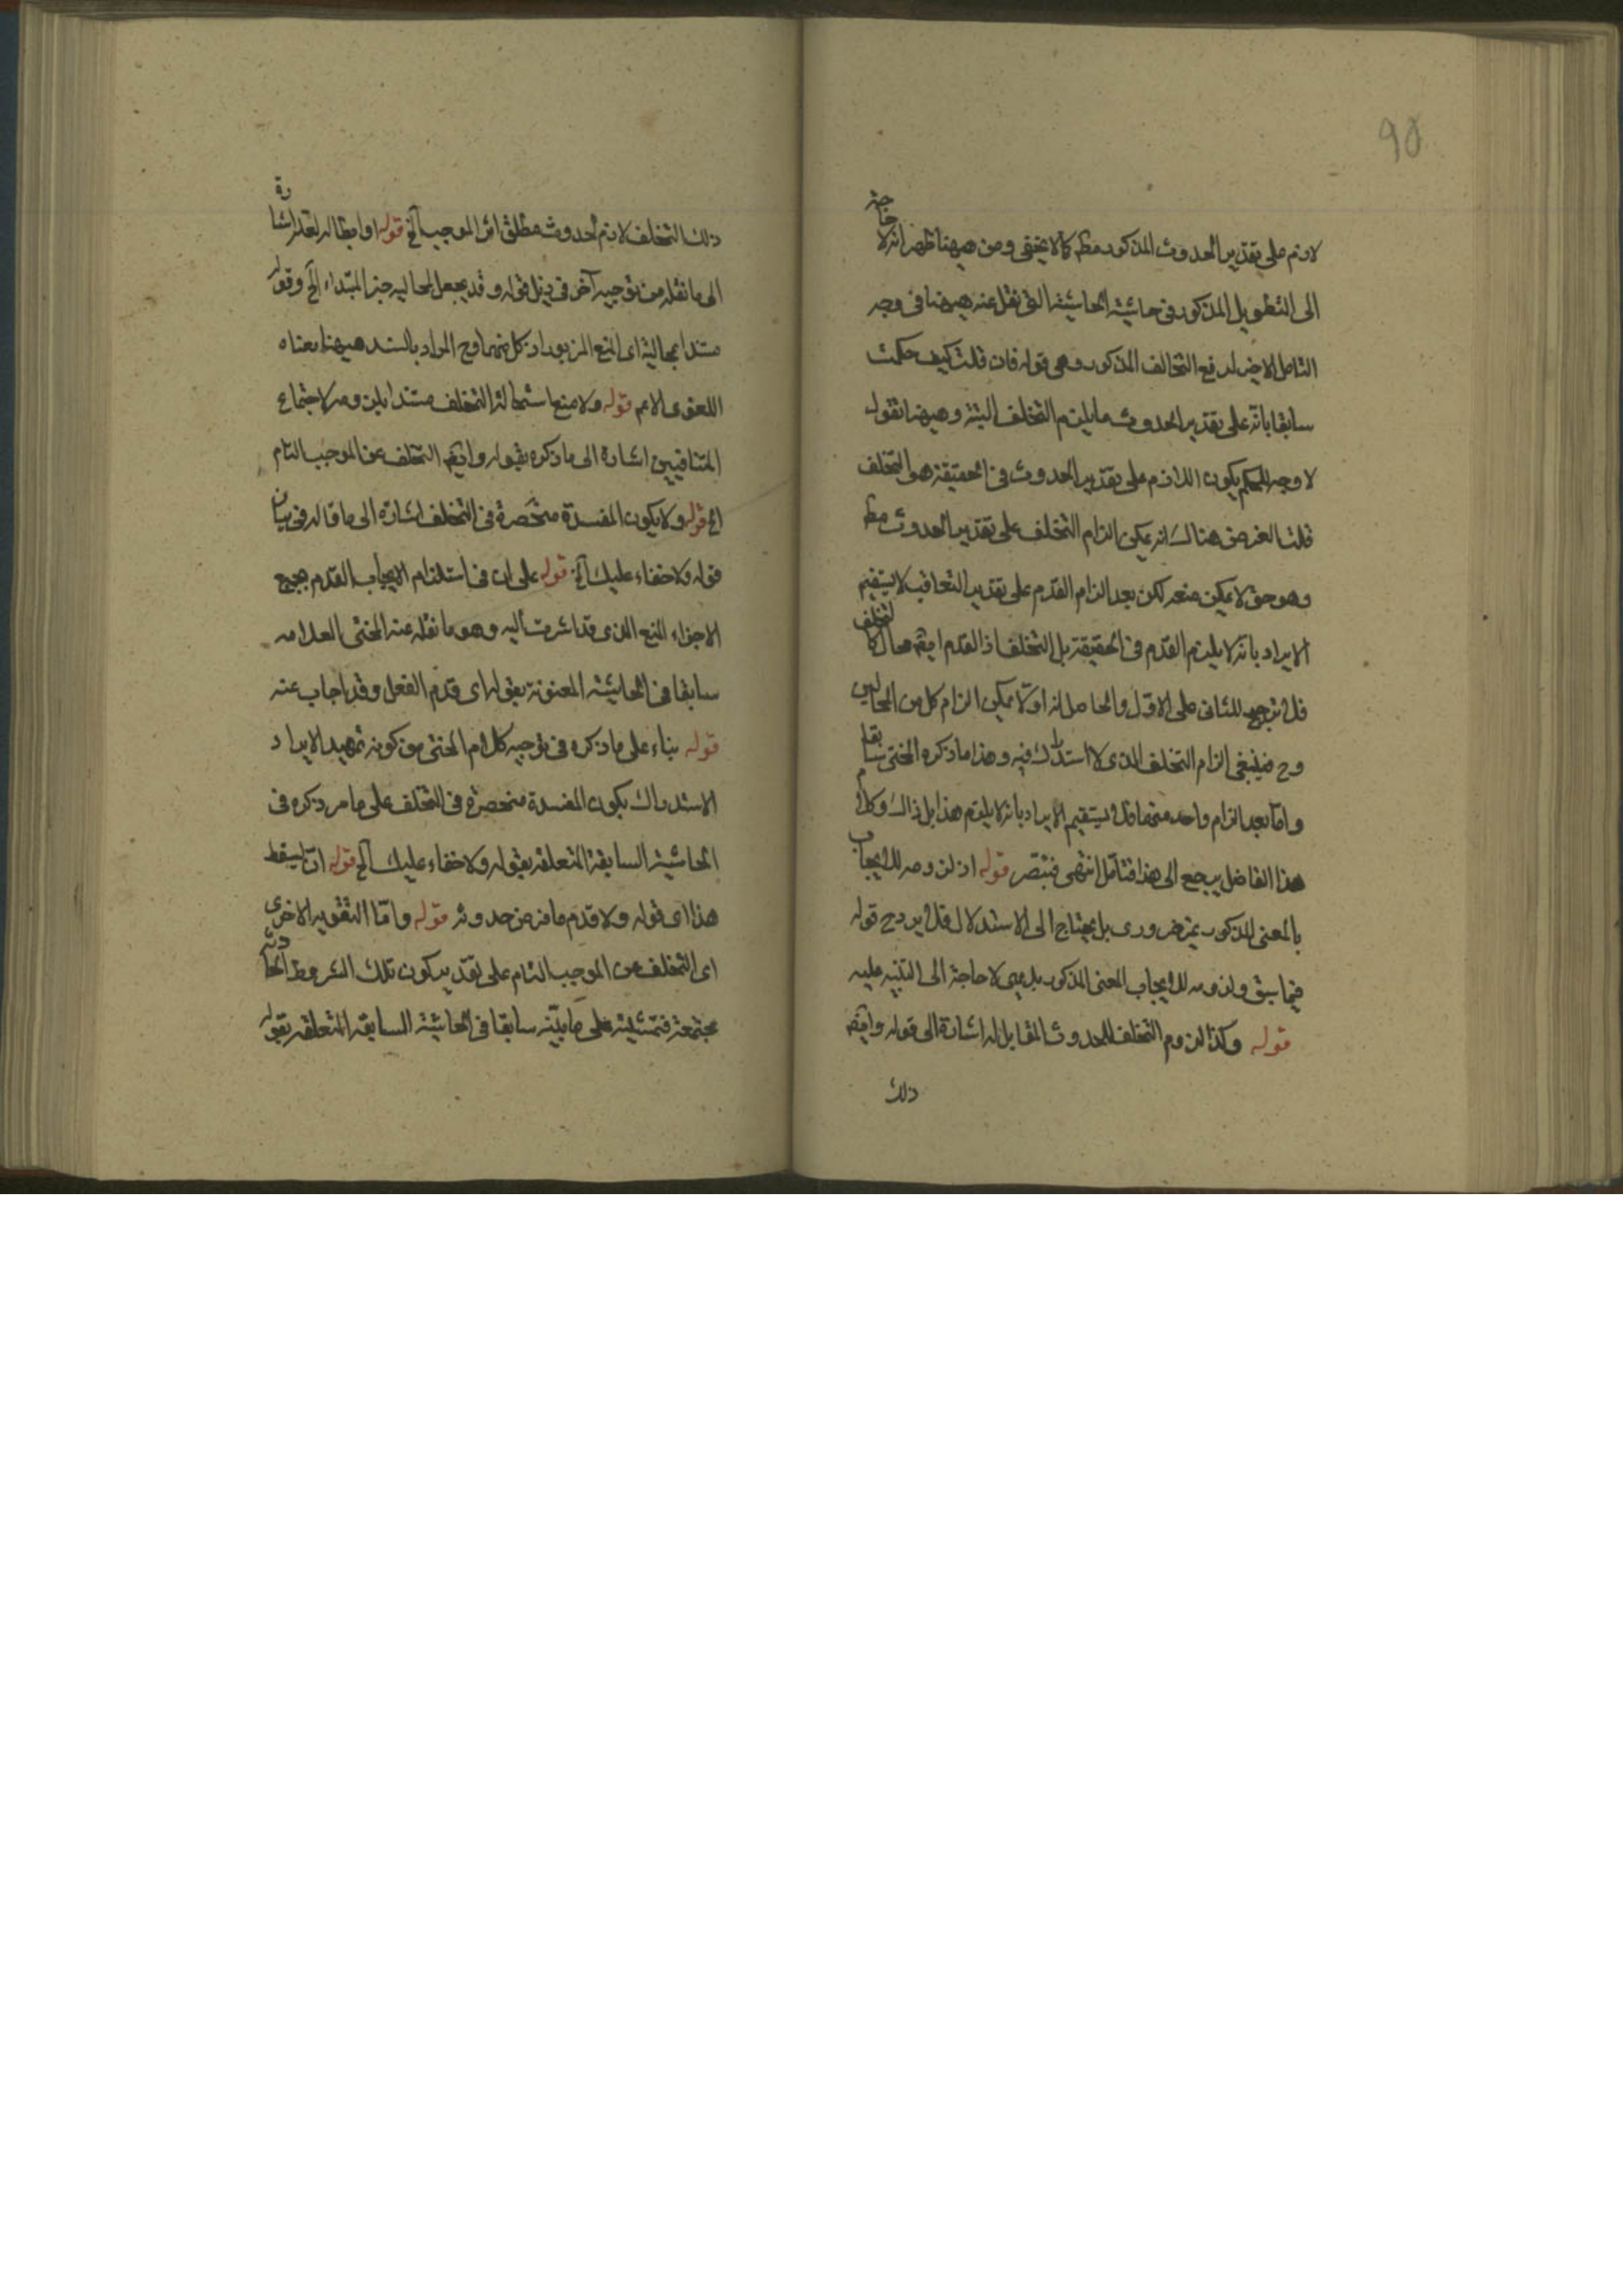 90
لازم على تقدير الحدوث المذكور مطم كما لا يخفى ومن ههنا ظهر انه لا حاجة
الى التطويل المذكور في حاشية الحاشية التي نقل عنه ههنا في وجه
التامل الاخير لدفع التخالف المذكور وهى قوله فان قلت كيف حكمت
سابقا بانه على تقدير الحدوث ما يلزم التخلف البتة وههنا نقول
لا وجه للحكم بكون اللازم على تقدير الحدوث في الحقيقة هو التخلف
قلت الغرض هناك انه يمكن الزام التخلف على تقدير الحدوث مطم
وهو حق لا يمكن منعه لكن بعد الزام القدم على تقدير التعاقب لا يستقيم
الايراد بانه لا يلزم القدم في الحقيقة بل التخلف اذ القدم ايضم محال كالتخلف
فلا ترجيح للثاني على الاول والحاصل انه اولا يمكن الزام كل من المحالين
وح فينبغي الزام التخلف الذى لا استدراك فيه وهذا ما ذكره المحشى سابقا
واما بعد الزام واحد منهما فلا يستقيم الايراد بانه لا يلزم هذا بل ذاك وكلام
هذا الفاضل يرجع الى هذا فتامل انتهى فتبصر قوله اذ لزومه للايجاب
بالمعنى المذكور غير ضرورى بل يحتاج الى الاستدلال فلا يرد ح قوله
فيما سبق ولزومه للايجاب المعنى المذكور بديهى لا حاجة الى التنبيه عليه
قوله وكذا لزوم التخلف للحدوث المقابل له اشارة الى قوله وايضم
ذلك
ذلك التخلف لازم لحدوث مطلق اثر الموجب آلخ قوله او ابطاله لعله اشارة
الى ما نقله من توجيه آخر في ذيل قوله وقد يجعل المحالية خبر المبتداء آلخ وقوله
مستندا بمحالية اى المنع المزبور اذ كل منهما وح المراد بالسند ههنا معناه
اللغوى الاعم قوله ولا منع استحالة التخلف مستندا بلزومه لاجتماع
المتنافيين اشارة الى ما ذكره بقوله وايضم التخلف عن الموجب التام
الخ قوله ولا يكون المفسدة منحصرة في التخلف اشارة الى ما قاله في بيان
قوله ولا خفاء عليك آلخ قوله على ان في استلزام الايجاب القدم بجميع
الاجزاء المنع الذى قد اشرت اليه وهو ما نقله عنه المحشى العلامه
سابقا في الحاشية المعنونة بقوله اى قدم الفعل وقد اجاب عنه
قوله بناء على ما ذكره في توجيه كلام المحشى من كونه تمهيد الايراد
الاستدراك بكون المفسدة منحصرة في التخلف على ما مر ذكره في
الحاشية السابقة المتعلقة بقوله ولا خفاء عليك آلخ قوله انما يسقط
هذا اى قوله ولا قدم ما فرض حدوثه قوله واما التقوير الاخرى
اى التخلف عن الموجب التام على تقدير كون تلك الشروط الحادثة
مجتمعة فتمشيته على ما بينه سابقا في الحاشية السابقة المتعلقة بقوله